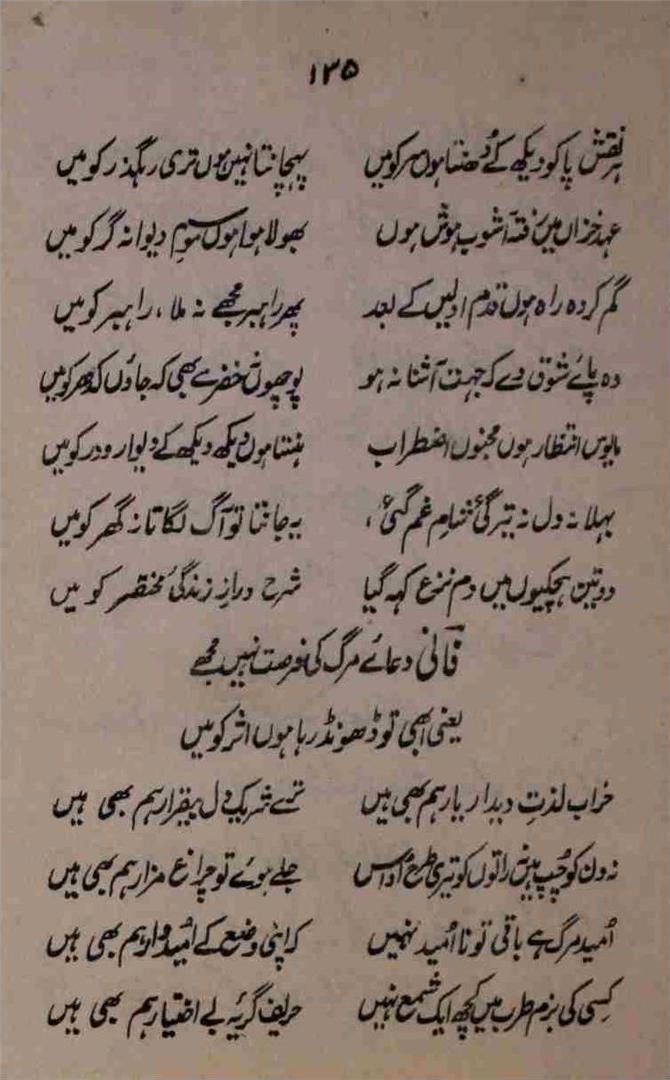 ۱۲۵
ہر نقش پا کو دیکھ کے دُھنتا ہوں سر کو میں پہچانتا نہیں ہوں تری رہگذر کو میں
عہد خزاں میں فتنہ آشوب ہوش ہوں بھولا ہوا ہوں موسم دیوانہ گر کو میں
گم کردہ راہ ہوں قدم اولیں کے بعد پھر راہبر مجھے نہ ملا، راہبر کو میں
وہ پائے شوق دے کہ جہت آشنا نہ ہو پوچھوں نہ خضر سے بھی کہ جاؤں کدھر کو میں
مایوس انتظار ہوں مجنوں اضطراب ہنستا ہوں دیکھ دیکھ کے دیوار و در کو میں
بہلا نہ دل نہ تیرگیٔ شام غم گئی، یہ جانتا تو آگ لگاتا نہ گھر کو میں
دو تین ہچکیوں میں دم نزع کہہ گیا شرح دراز زندگیٔ مختصر کو میں
فانی دعائے مرگ کی فرصت نہیں مجھے
یعنی ابھی تو ڈھونڈ رہا ہوں اثر کو میں
خراب لذتِ دیدار یار ہم بھی ہیں ترے شریک دل بیقرار ہم بھی ہیں
نہ دن کو چپ ہیں نہ راتوں کو تیری طرح اُداس جلے ہوئے تو چراغ مزار ہم بھی ہیں
اُمید مرگ ہے باقی تو نا اُمید نہیں کہ اپنی وضع کے اُمیدوار ہم بھی ہیں
کسی کی بزم طرب میں کچھ ایک شمع نہیں حریف گریۂ بے اختیار ہم بھی ہیں